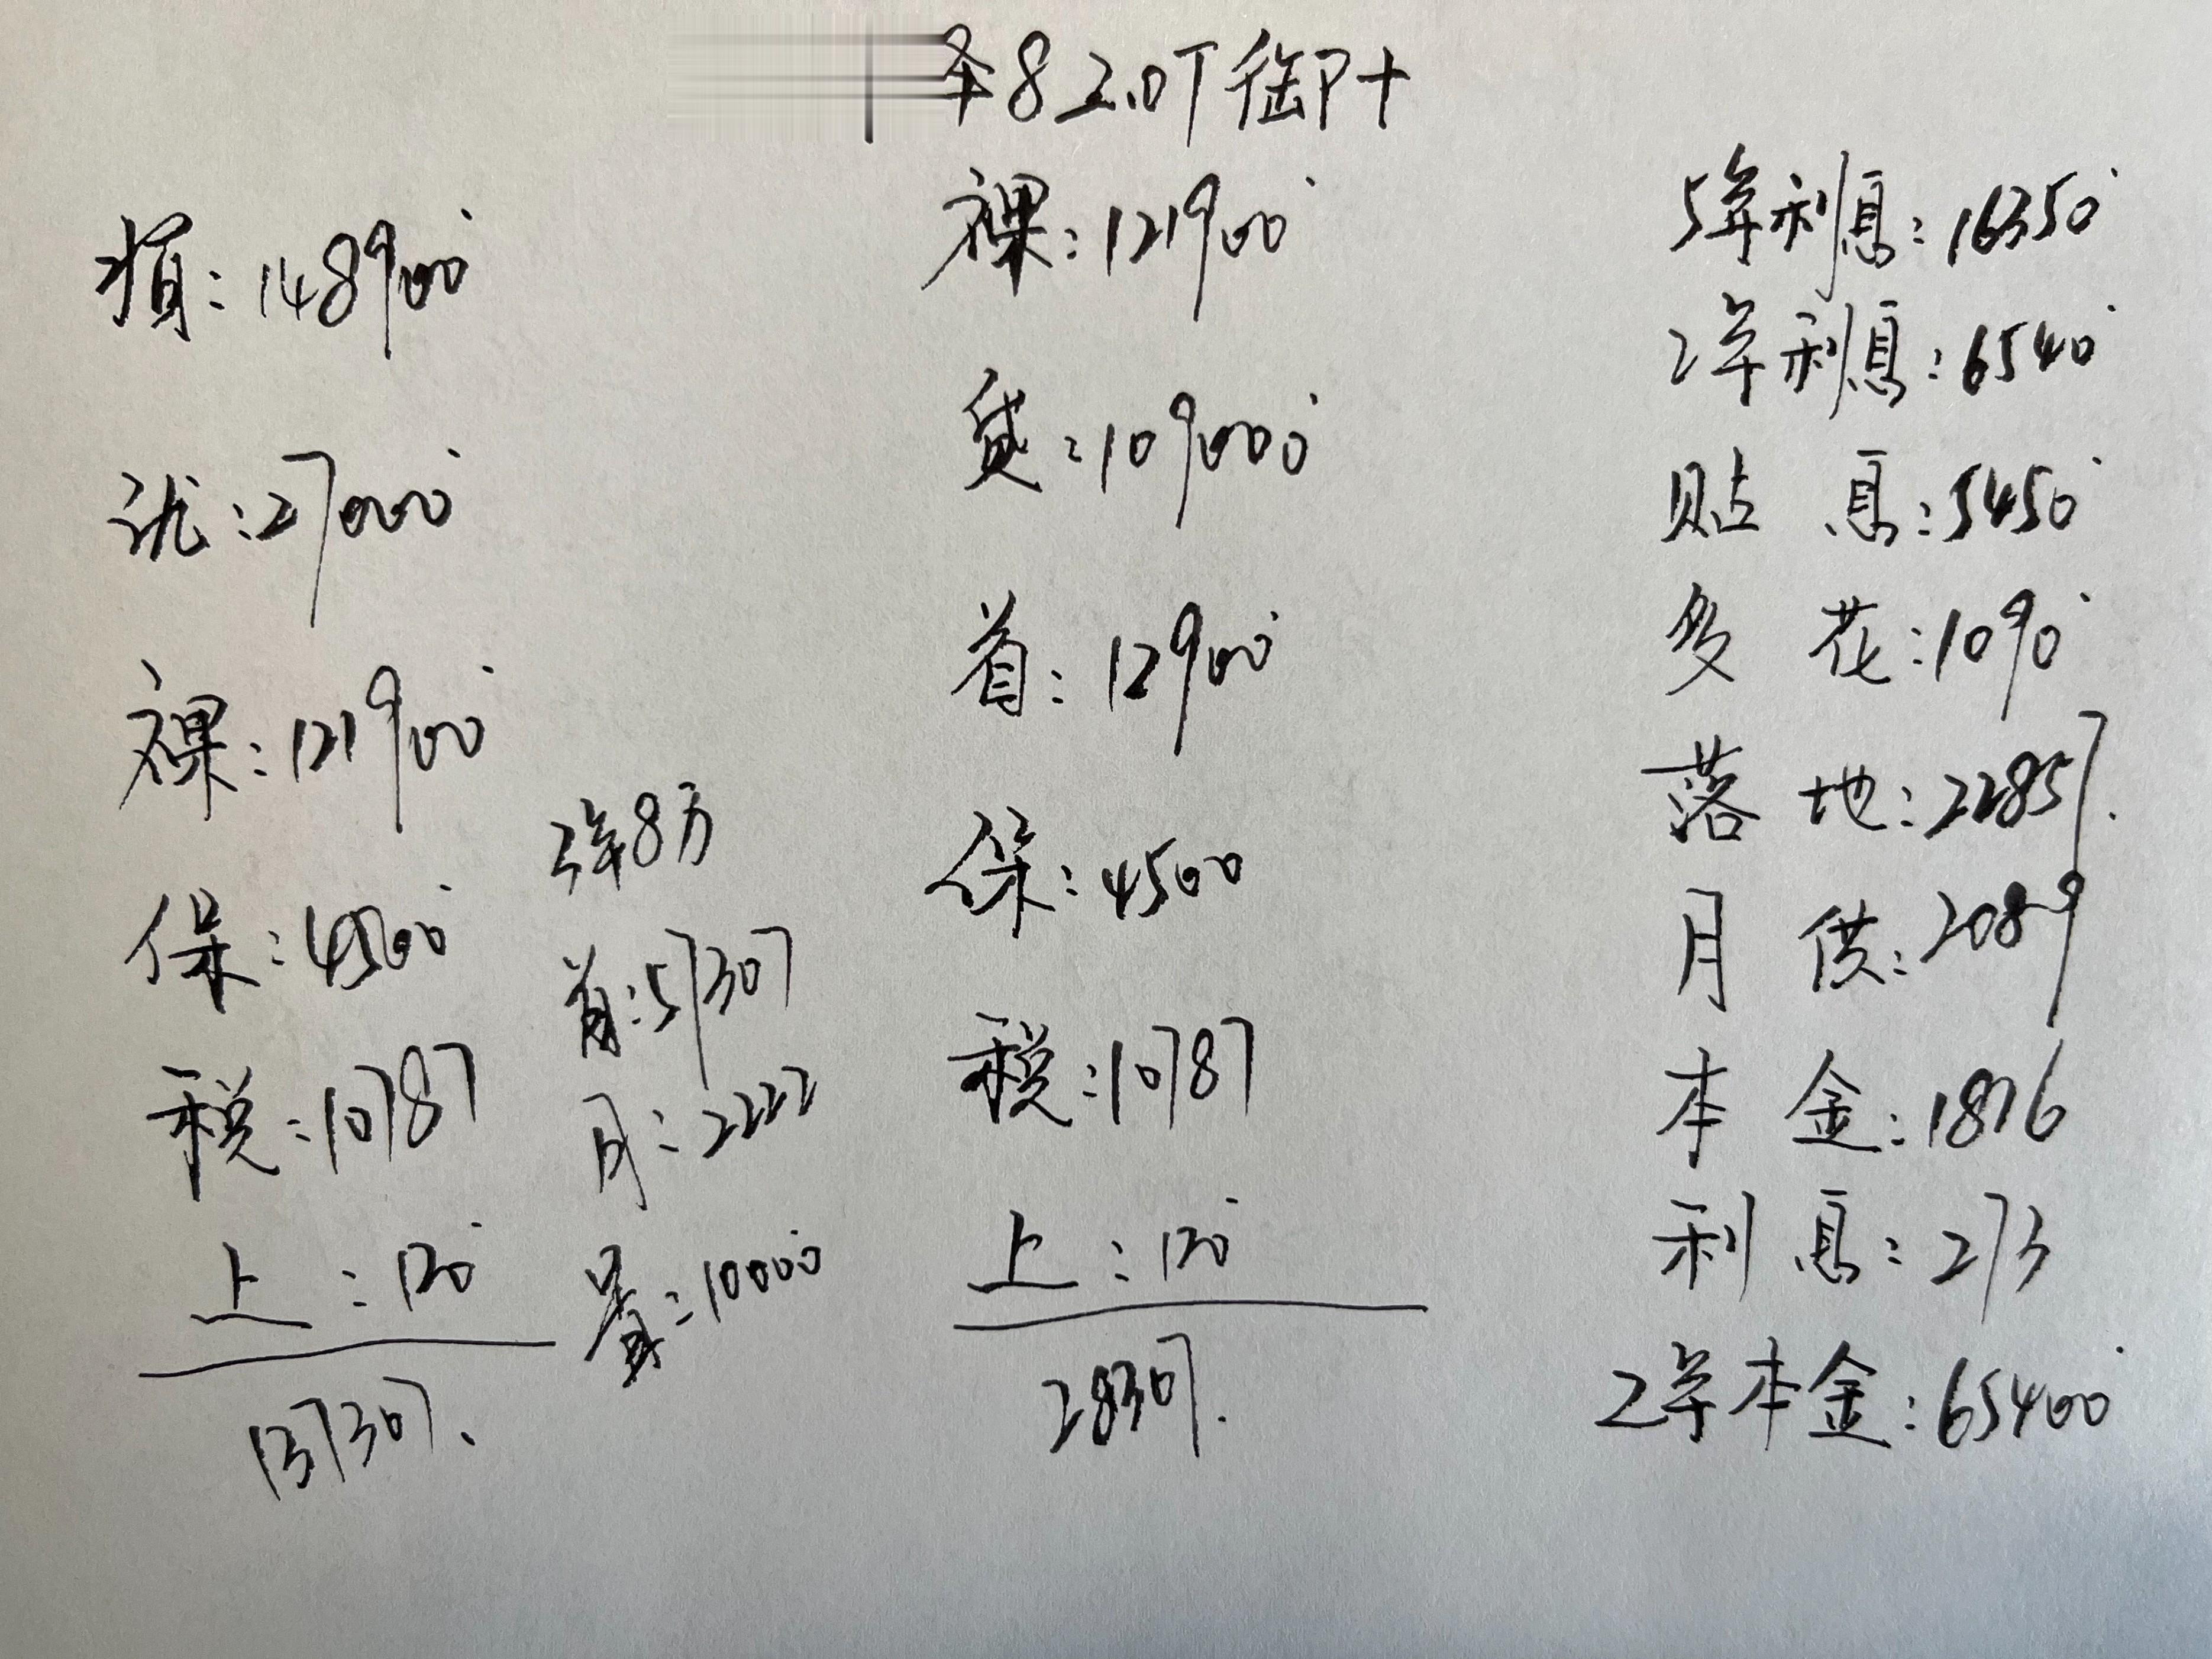 8 2.0T 御P+
损:148900
优:27000
裸:121900
保:4500
税:10787
上:120
137307.
3年8万
首:57307
月:2222
置:10000
裸:121900
贷:109000
首:12900
保:4500
税:10787
上:120
28307.
5年利息:16350
2年利息:6540
贴息:5450
多花:1090
落地:22857.
月供:2089
本金:1816
利息:273
2年本金:65400